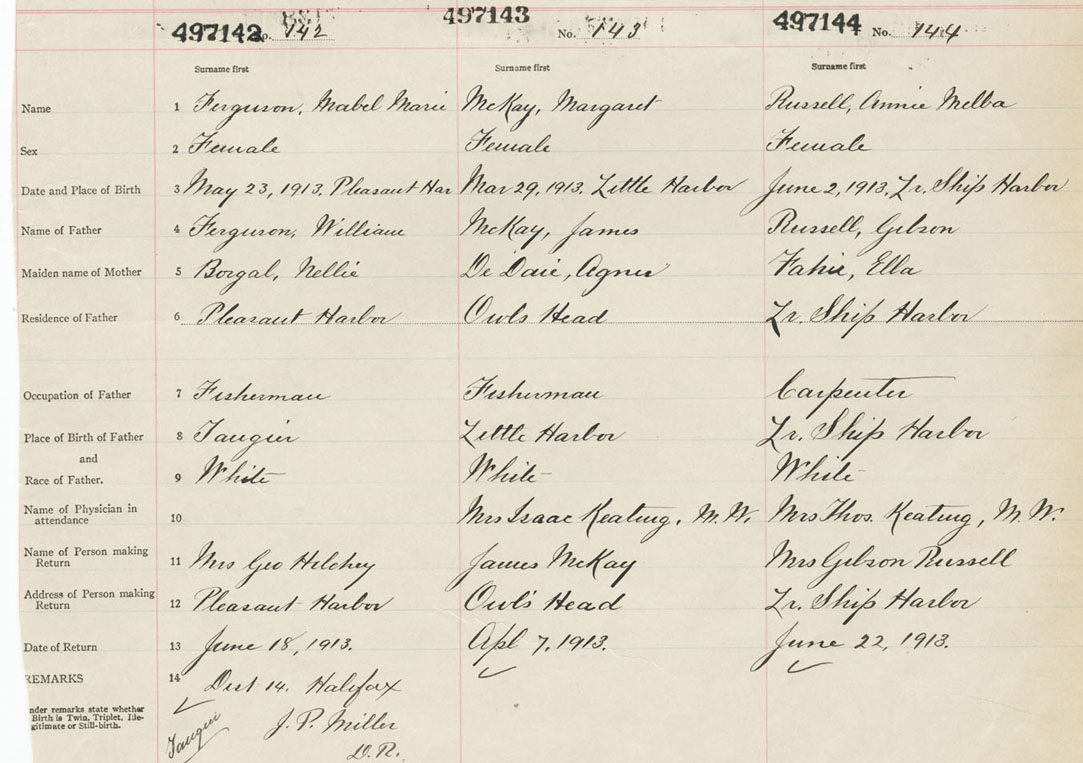 497142 No. 142 497143 No. 143 497144 No. 144
Surname first Surname first Surname first
Name 1 Ferguson, Mabel Marie McKay, Margaret Russell, Annie Melba
Sex 2 Female Female Female
Date and Place of Birth 3 May 23, 1913. Pleasant Har Mar 29, 1913. Little Harbor June 2, 1913. Lr. Ship Harbor
Name of Father 4 Ferguson, William McKay, James Russell, Gibson
Maiden name of Mother 5 Borgal, Nellie De Daie, Agnes Ella
Residence of Father 6 Pleasant Harbor Owls Head Lr. Ship Harbor
Occupation of Father 7 Fisherman Fisherman Carpenter
Place of Birth of Father 8 Tangier Little Harbor Lr. Ship Harbor
and
Race of Father. 9 White White White
Name of Physician in
attendance 10 Mrs Isaac Keating, M.W. Mrs Thos. Keating, M.W.
Name of Person making
Return 11 Mrs Geo Hilchey James McKay Mrs Gibson Russell
Address of Person making
Return 12 Pleasant Harbor Owl's Head Lr. Ship Harbor
Date of Return 13 June 18, 1913. Apl 7, 1913. June 22, 1913.
REMARKS 14 Dist 14. Halifax
nder remarks state whether
Birth is Twin, Triplet, Ille-
gitimate or Still-birth.
Tangier J. P. Miller
D.R.